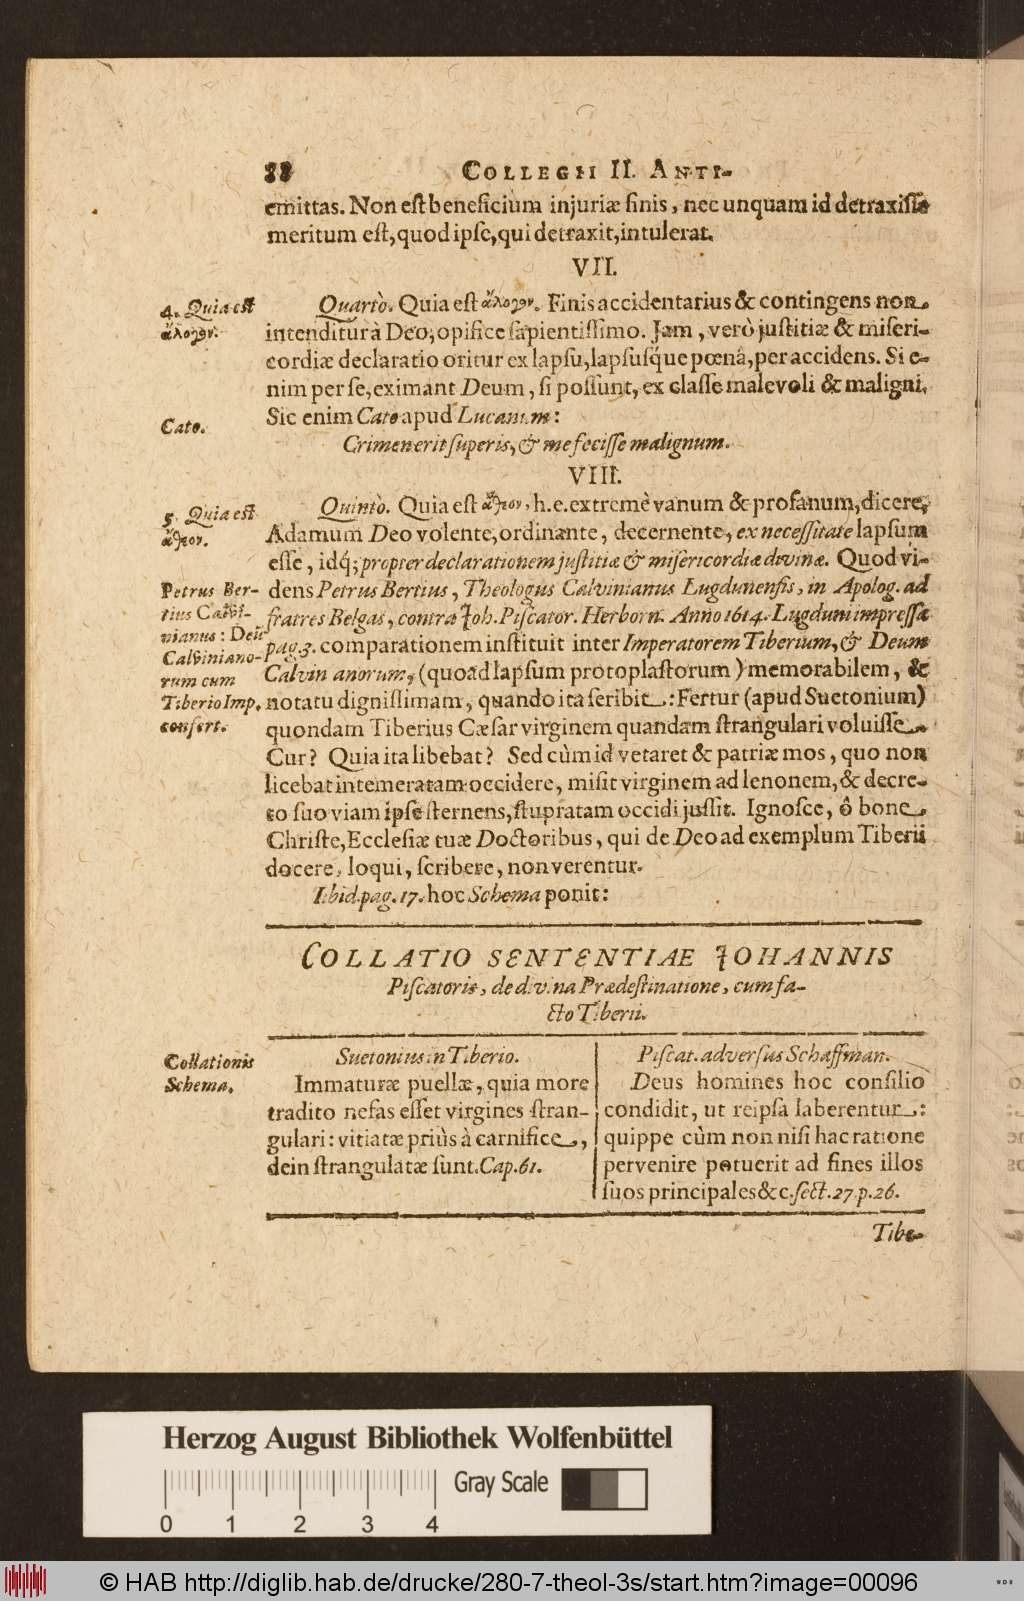 88 COLLEGII II. ANTI-
emittas. Non est beneficium injuriæ finis, nec unquam id detraxisse
meritum est, quod ipse, qui detraxit, intulerat.
VII.
4. Quia est
ἄλογον.
Quartò. Quia est ἄλογον. Finis accidentarius & contingens non
intenditur à Deo, opifice sapientissimo. Jam, verò justitiæ & miseri-
cordiæ declaratio oritur ex lapsu, lapsusq́ue pœnâ, per accidens. Si e-
nim per se, eximant Deum, si possunt, ex classe malevoli & maligni.
Sic enim Cato apud Lucanum:
Cato.
Crimen erit superis, & me fecisse malignum.
VIII.
5. Quia est
ἄθεον.
Quintò. Quia est ἄθεον, h.e. extremè vanum & profanum, dicere,
Adamum Deo volente, ordinante, decernente, ex necessitate lapsum
esse, idq́; propter declarationem justitiæ & misericordiæ divinæ. Quod vi-
Petrus Ber-
tius Calvi-
nianus: Deũ
Calviniano-
rum cum
Tiberio Imp.
confert.
dens Petrus Bertius, Theologus Calvinianus Lugdunensis, in Apolog. ad
fratres Belgas, contra Joh. Piscator. Herborn. Anno 1614. Lugduni impressa
pag. 3. comparationem instituit inter Imperatorem Tiberium, & Deum
Calvinianorum, (quoad lapsum protoplastorum) memorabilem, &
notatu dignissimam, quando ita scribit: Fertur (apud Suetonium)
quondam Tiberius Cæsar virginem quandam strangulari voluisse.
Cur? Quia ita libebat? Sed cùm id vetaret & patriæ mos, quo non
licebat intemeratam occidere, misit virginem ad lenonem, & decre-
to suo viam ipse sternens, stupratam occidi jussit. Ignosce, ô bone
Christe, Ecclesiæ tuæ Doctoribus, qui de Deo ad exemplum Tiberii
docere, loqui, scribere, non verentur.
Ibid. pag. 17. hoc Schema ponit:
COLLATIO SENTENTIAE JOHANNIS
Piscatoris, de divina Prædestinatione, cum fa-
cto Tiberii.
Collationis
Schema.
Suetonius in Tiberio.
Immaturæ puellæ, quia more
tradito nefas esset virgines stran-
gulari: vitiatæ priùs à carnifice,
dein strangulatæ sunt. Cap. 61.
Piscat. adversus Schaffman.
Deus homines hoc consilio
condidit, ut reipsa laberentur:
quippe cùm non nisi hac ratione
pervenire potuerit ad fines illos
suos principales &c. sect. 27. p. 26.
Tibe-
Herzog August Bibliothek Wolfenbüttel
Gray Scale
0 1 2 3 4
© HAB http://diglib.hab.de/drucke/280-7-theol-3s/start.htm?image=00096